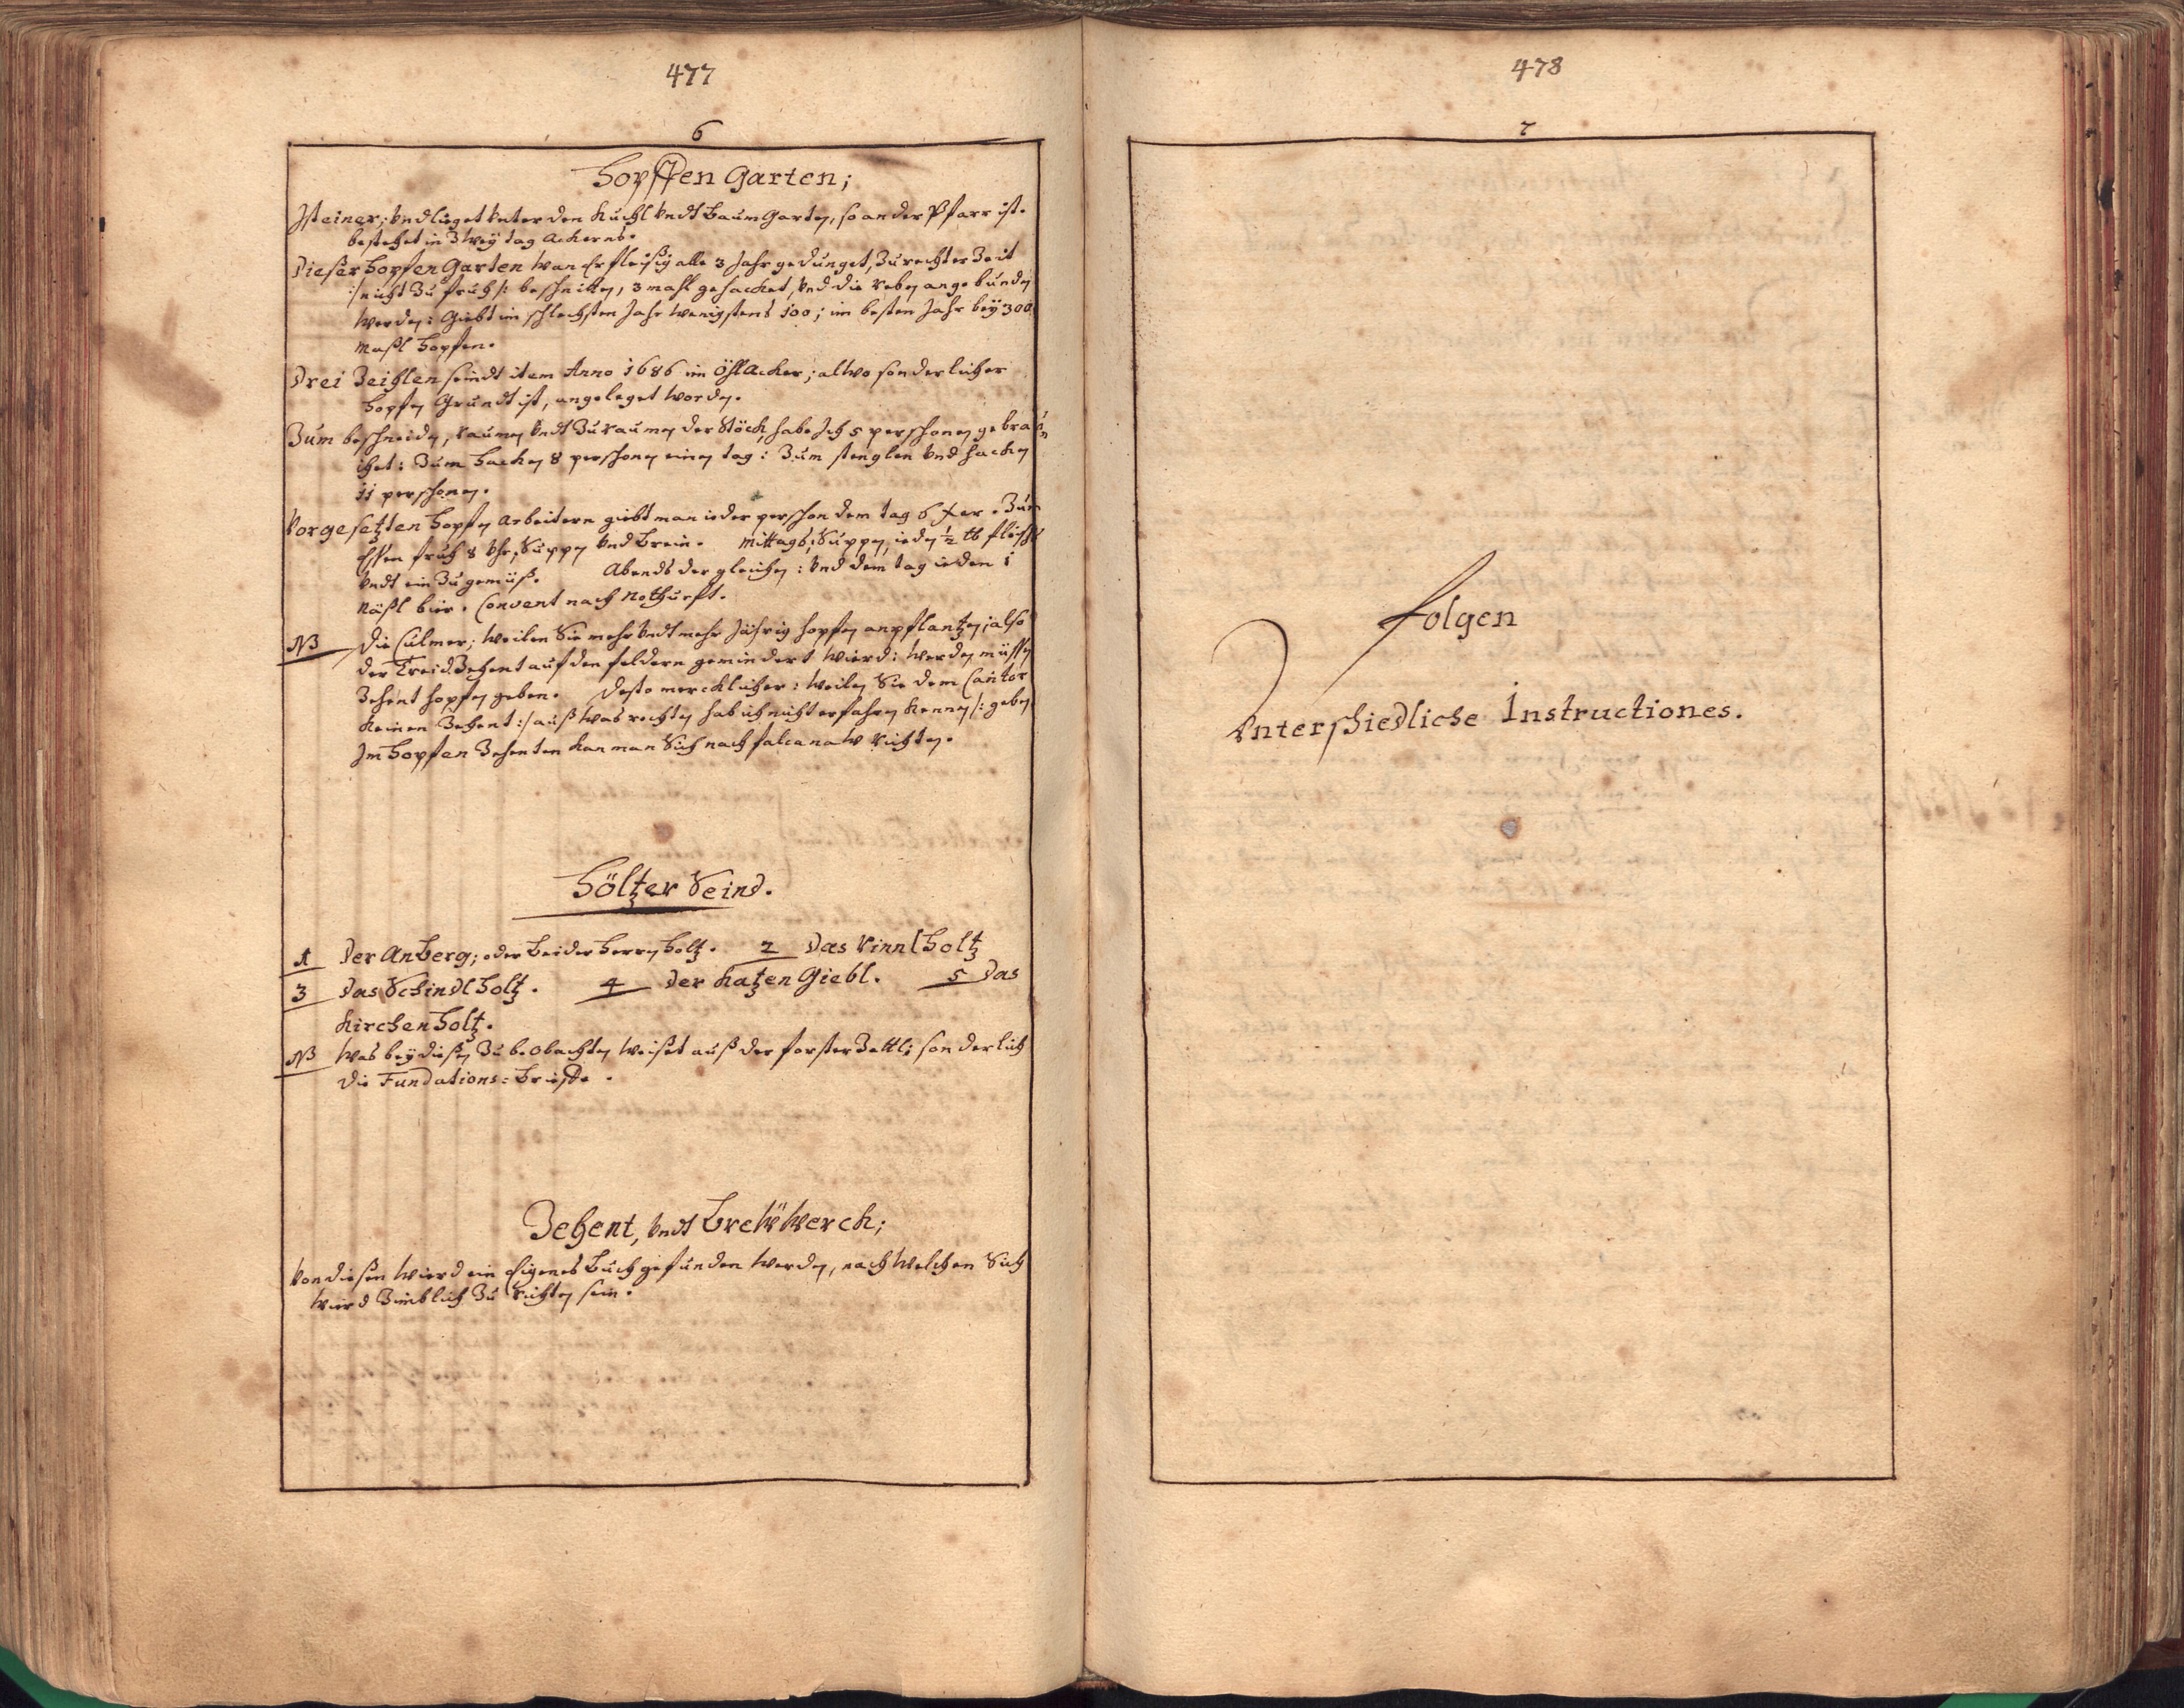 477
6
Hopffen Garten;
Ist einer; Vnd lieget Vnter den Kuchl Vndt Baum Garten, so an der Pfarr ist.
bestehet in Zweÿ tag Ackerns.
Dieser Hopfen Garten wan Er fleißig alle 3 Jahr gedunget, Zu rechter Zeit
:/nicht Zu fruh/: beschnitten, 3 mahl gehacket, Vnd die reben angebunden
werden: Giebt im schlechsten Jahr wenigstens 100; im besten Jahr beÿ 300
Maßl Hopfen.
Drei Zeihlen seindt item Anno 1686 im Öhlacker; alwo sonderlicher
Hopfen Grundt ist, angeleget worden.
Zum beschneiden, raumen Vndt Zuraumen der Stöck, habe Ich 5 pershonen gebrau
chet: Zum Hacken 8 pershonen einen tag: Zum stenglen Vnd hacken
11 pershonen.
Vorgesetzten Hopfen Arbeitern giebt man ieder pershon dem tag 6 xer. Zum
Essen fruh 8 Vhr, Suppen Vnd Brein. Mittags; Suppen, ieden ½ ℔ fleisch
Vndt ein Zugemüß. Abends dergleichen: Vnd dem tag ieden 1
Näßl bier. Convent nach Nothurft.
NB Die Culmer; weilen Sie mehr Vndt mehr Jährig hopfen anpflantzen; also
der Treid Zehent auf den feldern gemindert wierd: werden müssen
Zehent hopfen geben. Desto mercklicher: weilen Sie dem Cantor
keinen Zehent :/auß was rechten hab ich nicht erfahren kennen/: geben
Im Hopfen Zehenten kan man Sich nach falcanaw richten.
Höltzer Seind.
1 Der Anberg; oder Beider Herrn Holtz. 2 Das Rinnl Holtz
3 Das Schindl Holtz. 4 Der Katzen Giebl. 5 Das
Kirchen Holtz.
NB Was beÿ diesen Zu beobachten weiset auß der forster Zettl; sonderlich
die Fundations=Brieffe.
Zehent, Vndt Brewwerck;
Von diesen wierd ein Eigenes Buch gefunden werden, nach welchen Sich
wierd Zimblich Zu richten sein.
478
7
folgen
Vnterschiedliche Instructiones.